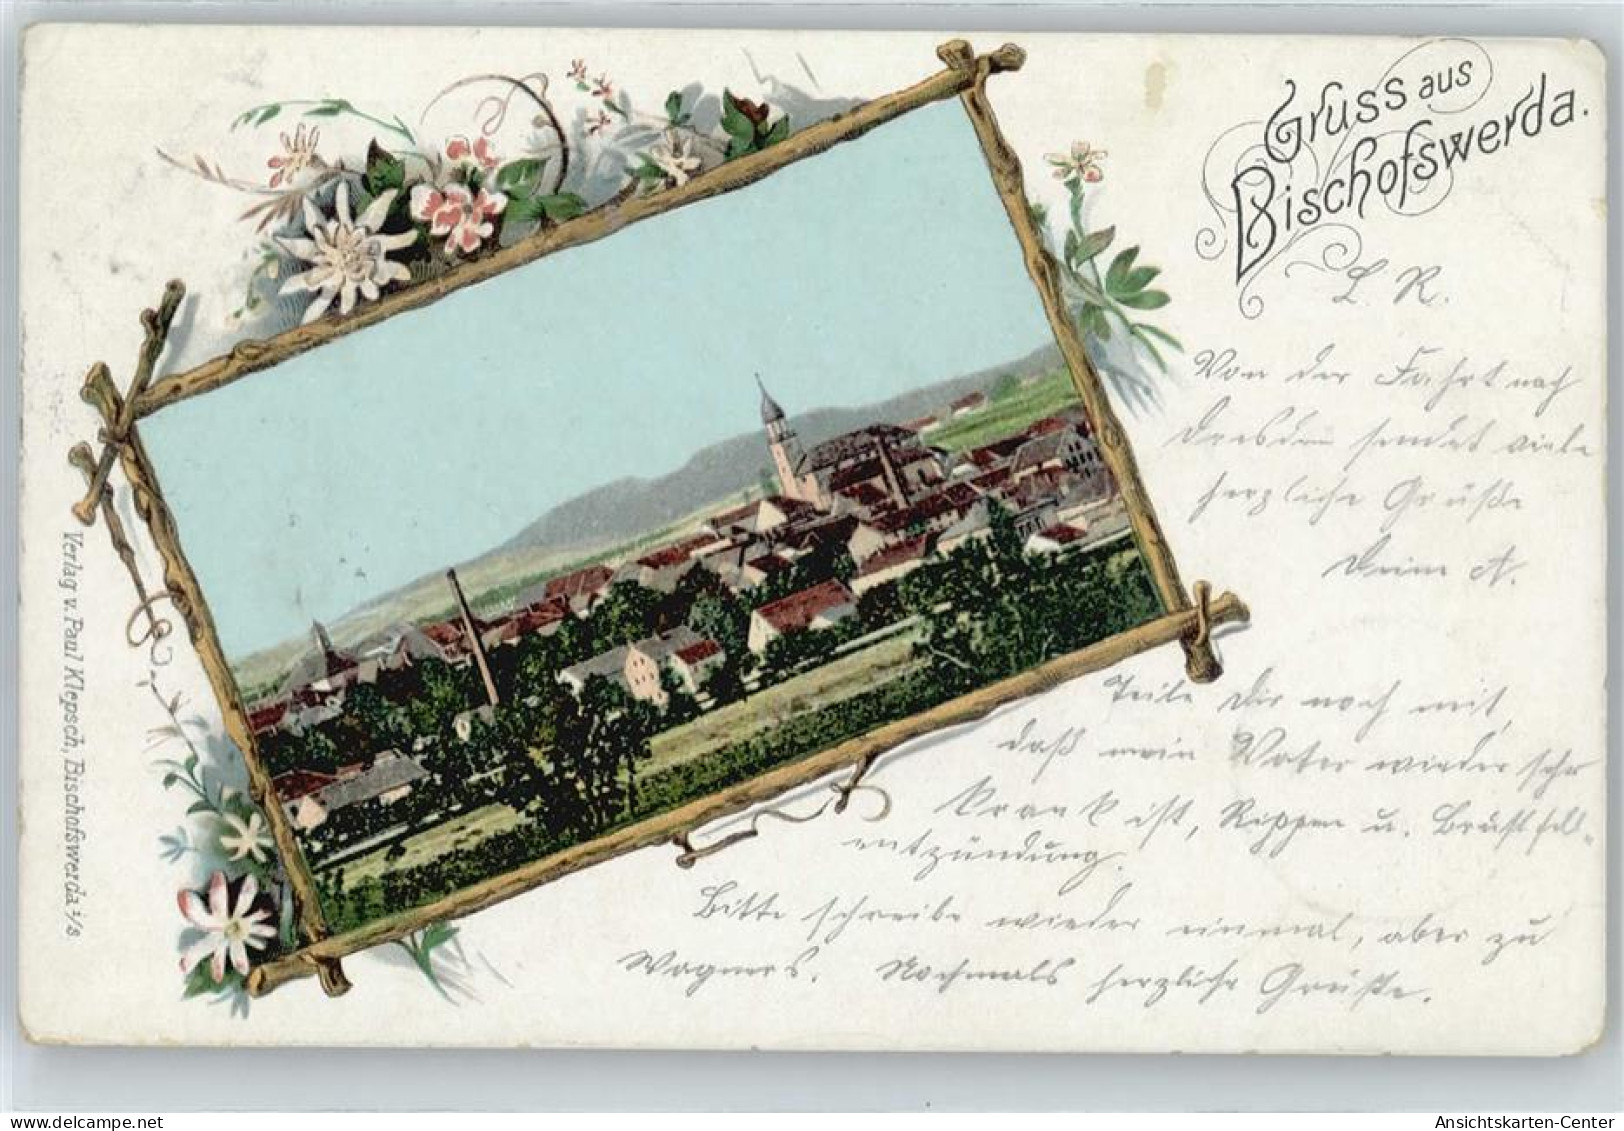 Gruss aus
Bischofswerda.
L. R.
Von der Fahrt nach
Dresden sendet viele
herzliche Grüße
Deine A.
Teile Dir noch mit,
daß mein Vater wieder sehr
krank ist, Rippen u. Brustfell-
entzündung.
Bitte schreibe wieder einmal, aber zu
Wagners. Nochmals herzliche Grüße.
Verlag v. Paul Klepsch, Bischofswerda i/S
Ansichtskarten-Center